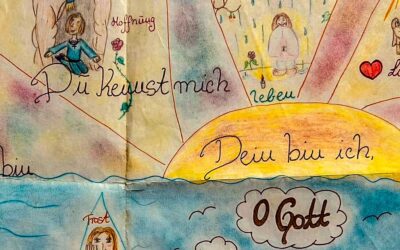 Hoffnung
Du kennst mich
Leben
Dein bin ich,
bin
Trost
O Gott